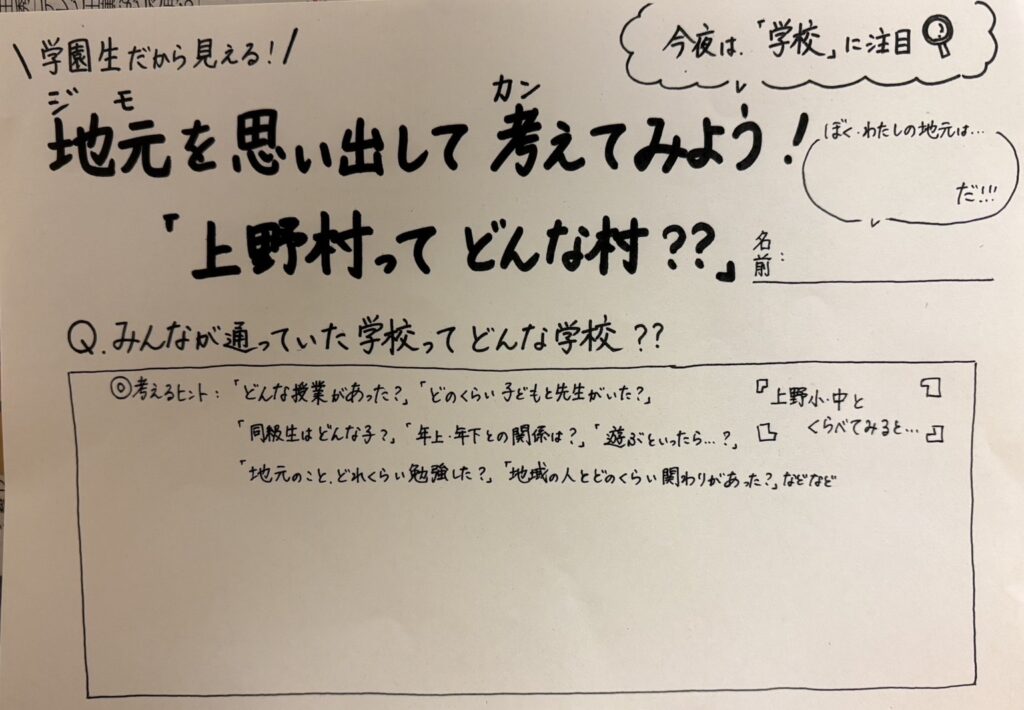 \学園生だから見える!/
今夜は、「学校」に注目
ジモ カン
地元を思い出して考えてみよう!
ぼく・わたしの地元は…
だ!!!
「上野村ってどんな村??」
名前:
Q.みんなが通っていた学校ってどんな学校??
◎考えるヒント:「どんな授業があった?」「どのくらい子どもと先生がいた?」
「同級生はどんな子?」「年上・年下との関係は?」「遊ぶといったら…?」
「地元のこと、どれくらい勉強した?」「地域の人とどのくらい関わりがあった?」などなど
上野小・中と
くらべてみると…